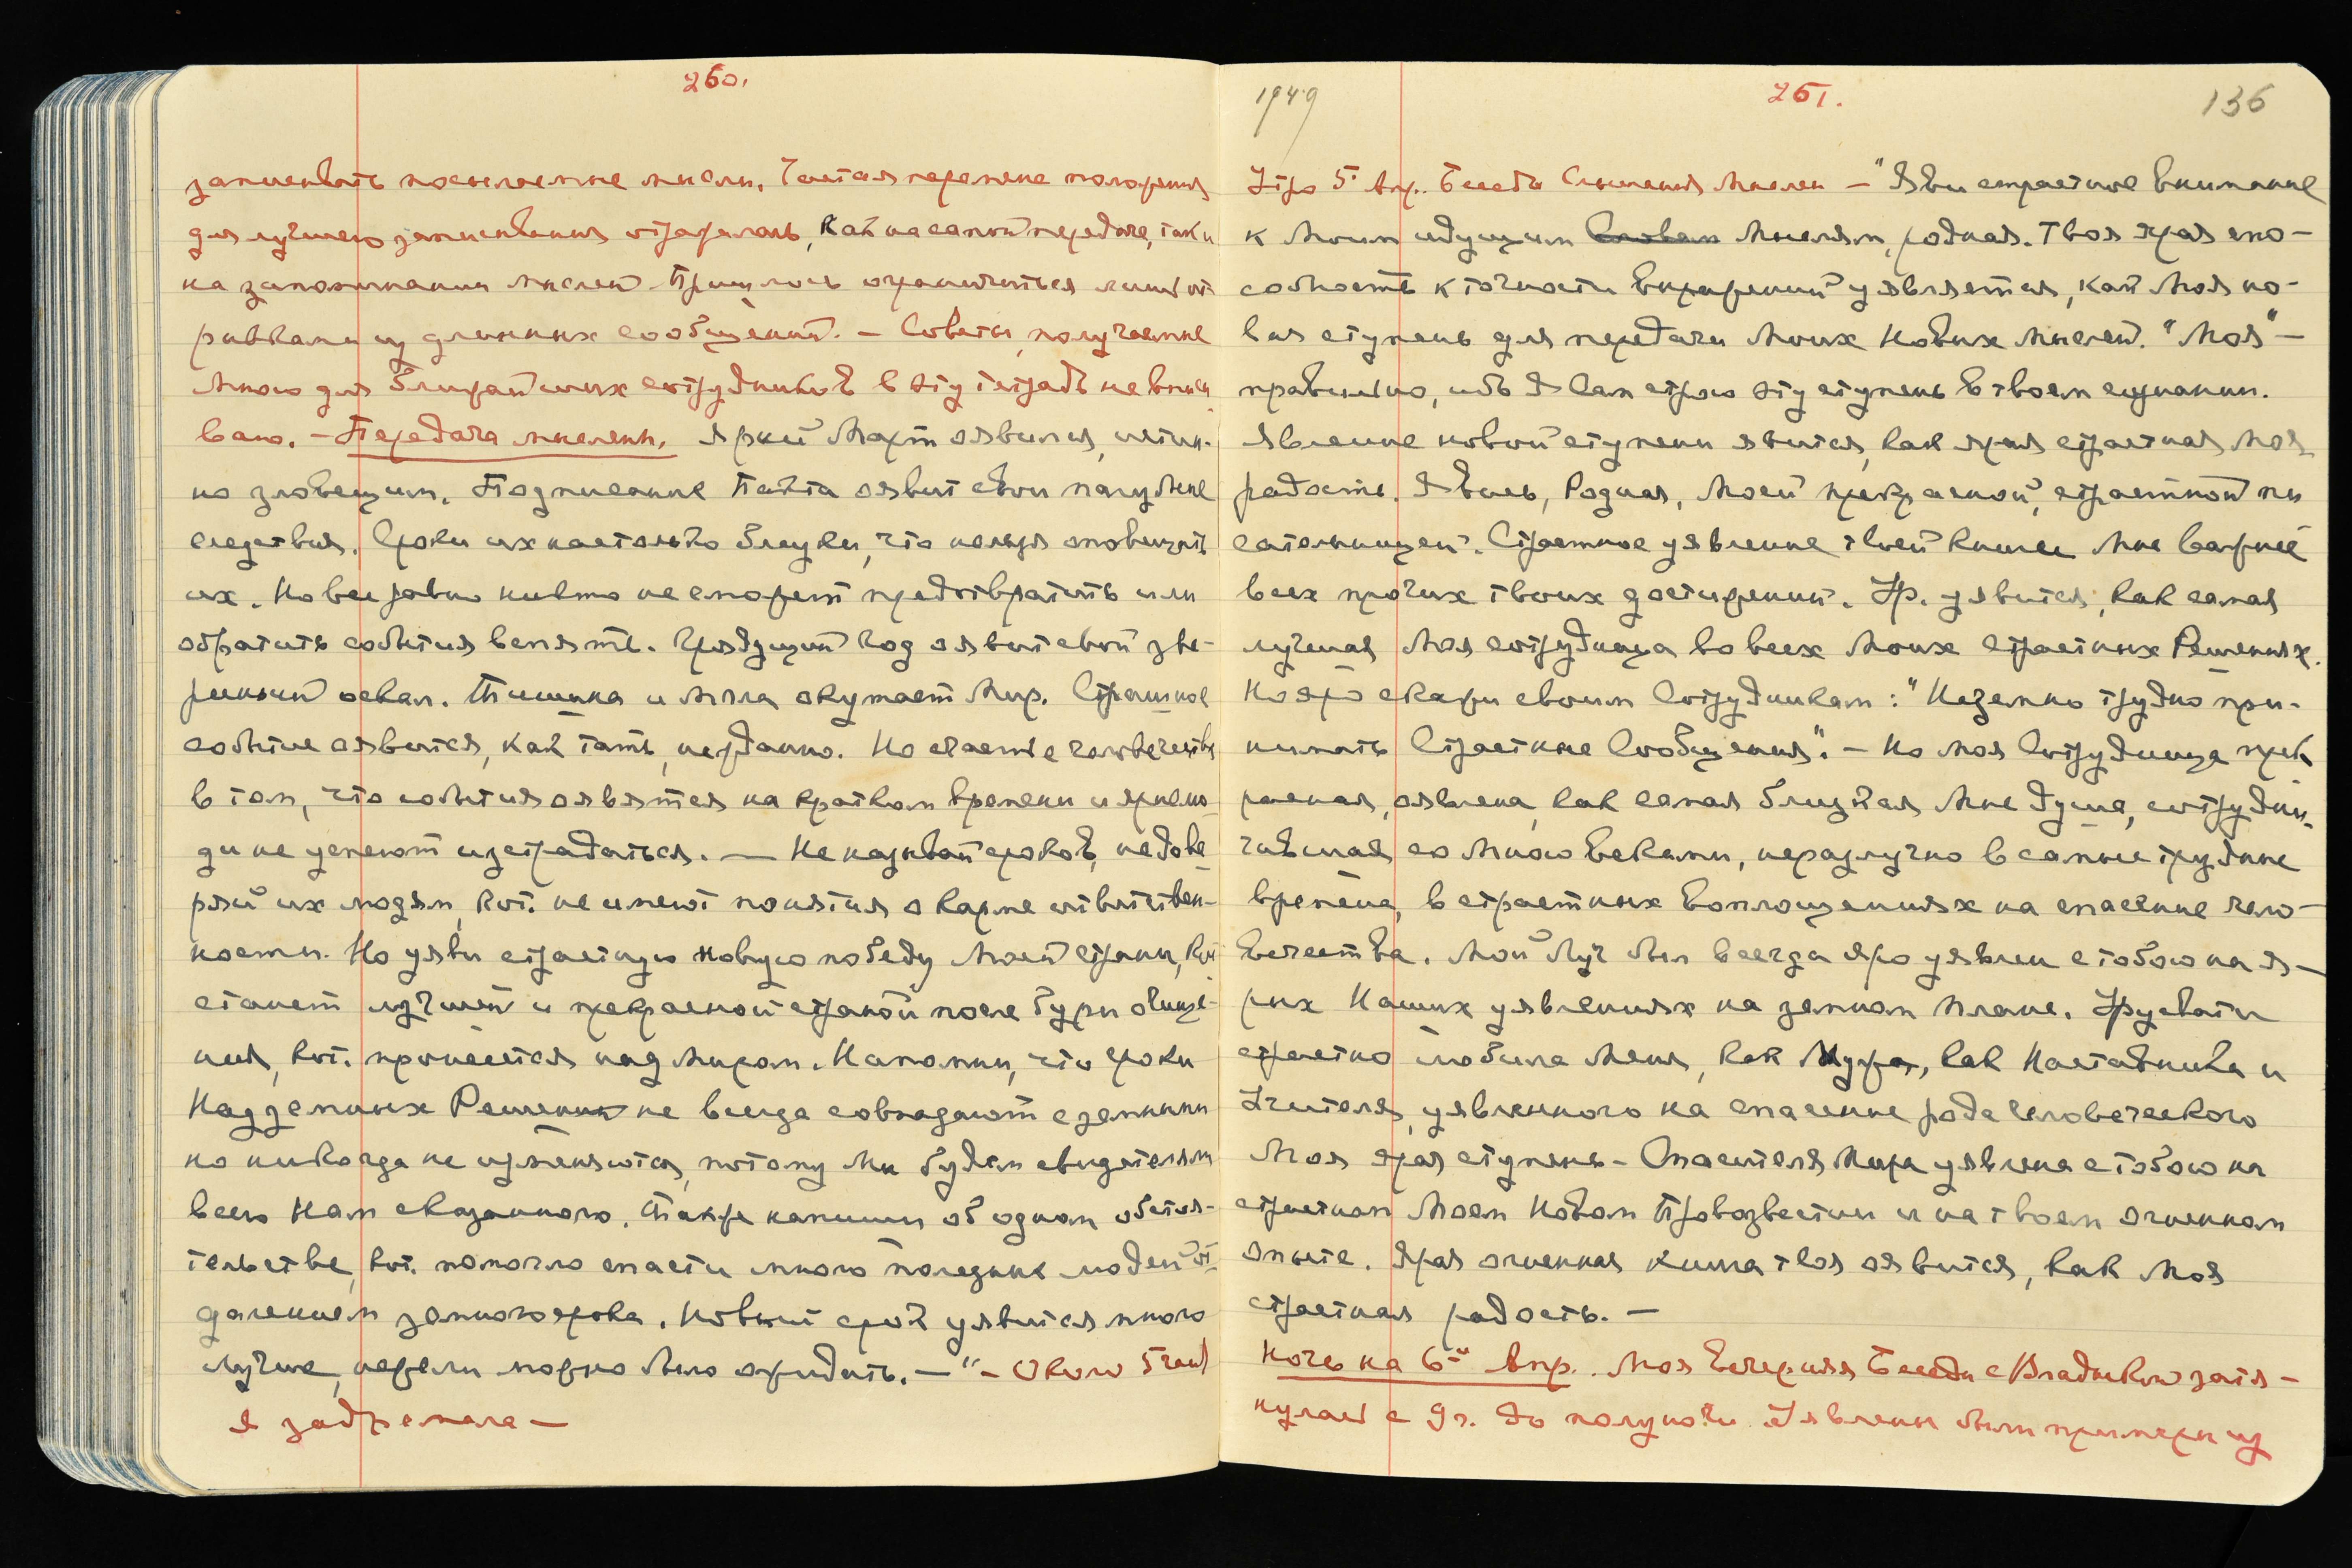 260.
записывать посылаемые мысли. Частая перемена положения
для лучшего записывания отражалась, как на самой передаче, так и
на запоминании мыслей. Пришлось ограничиться лишь от-
рывками из длинных сообщений. – Советы, получаемые
мною для ближайших сотрудников в эту тетрадь не вписы
ваю. – Передача мыслени. Яркий Март оявился, истин-
но зловещим. Подписание Пакта оявит свои пагубные
следствия. Сроки их настолько близки, что нельзя оповещать
их. Но все равно никто не сможет предотвратить или
обратить события вспять. Грядущий год оявит свой зве-
риный оскал. Тишина и Мгла окутает Мир. Страшное
событие оявится, как тать, нежданно. Но счастье человечества
в том, что события оявятся на кратком времени и
ди не успеют изстрадаться. — Не называй сроков, не дове
ряй их людям, кот. не имеют понятия о карме ответствен-
ности. Но уяви страстную новую победу Моей страны, кот.
станет лучшей и прекрасной страной после бури очище-
ния, кот. пронесется над Миром. Напомни, что сроки
Надземных Решений не всегда совпадают с земными
но никогда не изменяются, потому Мы будем свидетелями
всего Нам сказанного. Также напиши об одном обстоя-
тельстве, кот. помогло спасти много полезных людей от-
далением земного срока. Новый срок уявится много
лучше, нежели можно было ожидать. — " – Около 5 час
я задремала —
1949
261.
136
Утро 5 Апр. Беседа Слышания Мыслей – "Яви страстное внимание
к Моим идущим Словам Мыслям, родная. Твоя ярая спо-
собность к точности выражений уявляется, как Моя но-
вая ступень для передачи Моих Новых Мыслей. "Моя" –
правильно, ибо Я Сам строю эту ступень в твоем сознании.
Явление новой ступени явится, как ярая страстная Моя
радость. Явись, Родная, Моей прекрасной, страстной пи
сательницей. Страстное уявление твоей книги Мне важнее
всех прочих твоих достижений. Ур. уявится, как самая
лучшая Моя сотрудница во всех Моих страстных Решениях.
Но яро скажи своим Сотрудникам: "Неземно трудно при-
нимать Страстные Сообщения". – Но моя Сотрудница прек
расная, оявлена, как самая близкая Мне душа, сотрудни-
чавшая со Мною веками, неразлучно в самые трудные
времена, в страстных воплощениях на спасение чело-
вечества. Мой Луч был всегда яро уявлен с тобою на я-
рых Наших уявлениях на земном плане. Урусвати
страстно любила Меня, как Мужа, как Наставника и
Учителя, уявленного на спасение рода человеческого
Моя ярая ступень – Спасителя Мира уявлена с тобою на
страстном Моем Новом Провозвестии и на твоем огненном
опыте. Ярая огненная книга твоя оявится, как Моя
страстная радость. —
Ночь на 6-ое Апр. Моя Вечерняя Беседа с Владыкой затя-
нулась с 9 ч. до полуночи. Уявлены были примеры из